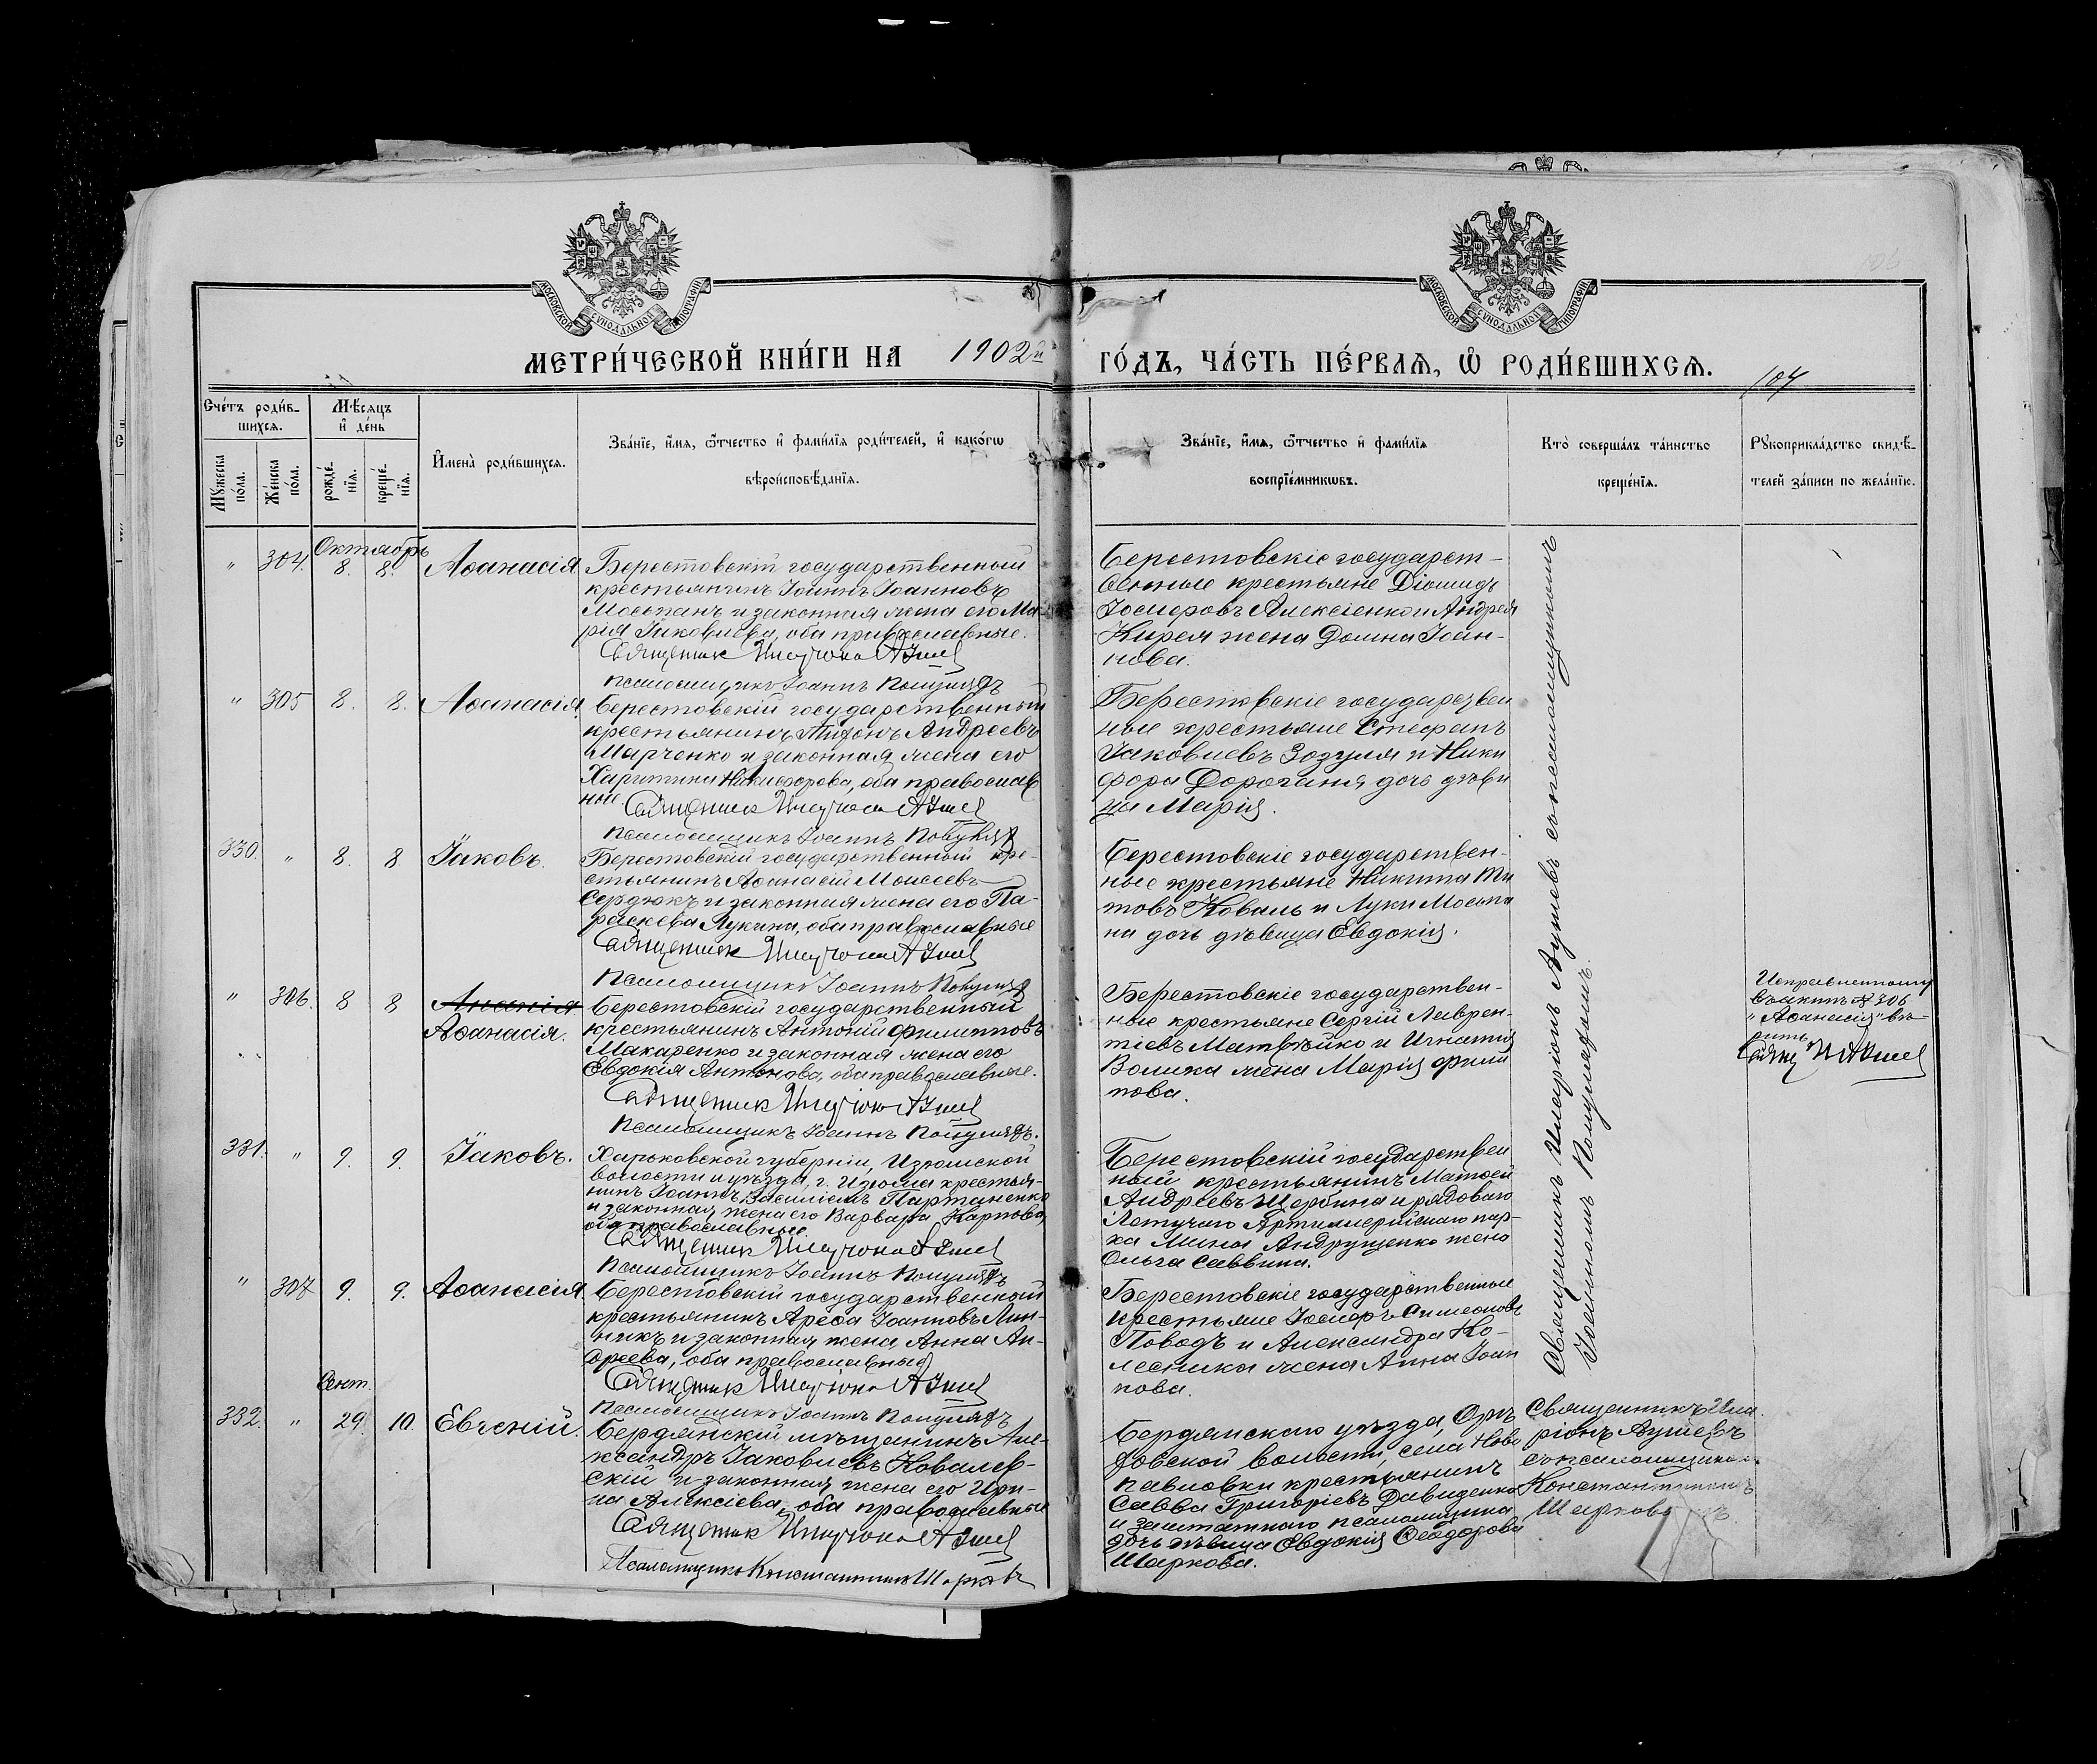 МОСКОВСКОЙ СУНОДАЛЬНОЙ ТИПОГРАФІИ
МОСКОВСКОЙ СУНОДАЛЬНОЙ ТИПОГРАФІИ
МЕТРИ́ЧЕСКОЙ КНИ́ГИ НА 1902й
ГО́ДЪ, ЧА́СТЬ ПЕ́РВАѦ, Ѡ РОДИ́ВШИХСѦ.
104
Сче́тъ роди́в-
шихсѧ.
Мꙋ́жеска
по́ла.
Же́нска
по́ла.
Мѣ́сѧцъ
и де́нь
рожде́-
нїѧ.
креще́-
нїѧ.
И҆мена̀ роди́вшихсѧ.
Зва́нїе, и҆́мѧ, ѻ҆́тчество и҆ фами́лїѧ роди́телей, и҆ како́гѡ
вѣроисповѣ́данїѧ.
Зва́нїе, и҆́мѧ, ѻ҆́тчество и҆ фами́лїѧ
воспрїе́мникѡвъ.
Кто̀ соверша́лъ та́инство
креще́нїѧ.
Рꙋкоприкла́дство свидѣ́-
телей за́писи по жела́нїю.
Октябрь
" 304. 8. 8. Аѳанасія
Берестовскій государственный
крестьянинъ Іоаннъ Іоанновъ
Мосьпанъ и законная жена его Ма-
рія Іаковлева, оба православные.
Священникъ Иларіонъ
Псаломщикъ Іоаннъ
Берестовскіе государст-
венные крестьяне Діомидъ
Іосифовъ Алексіенко и Андрея
Кирея жена Домна Іоан-
нова.
" 305 8. 8. Аѳанасія
Берестовскій государственный
крестьянинъ Андреевъ
Марченко и законная жена его
Харитина Никифорова, оба православ
ные
Священникъ Иларіонъ
Псаломщикъ Іоаннъ
Берестовскіе государствен
ные крестьяне Стефанъ
Іаковлевъ Зозуля и Ники
фора Дороганя дочь дѣви
ца Марія.
330. " 8. 8 Іаковъ.
Берестовскій государственный кре-
стьянинъ Аѳанасій Моисеевъ
Сердюкъ и законная жена его Па-
раскева Лукина, оба православные
Священникъ Иларіонъ
Псаломщикъ Іоаннъ
Берестовскіе государствен-
ные крестьяне Никита Ти
товъ Коваль и Луки Мосьпа
на дочь дѣвица Евдокія.
" 306. 8 8 Ананія
Аѳанасія.
Берестовскій государственный
крестьянинъ Антоній Филипповъ
Макаренко и законная жена его
Евдокія Антонова, оба православные.
Священникъ Иларіонъ
Псаломщикъ Іоаннъ
Берестовскіе государствен-
ные крестьяне Сергій Лаврен-
тіевъ Матвѣйко и Игнатія
Волика жена Марія Филип
пова.
Исправленному
въ актѣ № 306
"Аѳанасія" вѣ-
рить
331. " 9. 9. Іаковъ.
Харьковской губерніи, Изюмской
волости и уѣзда, г. Изюма крестья-
нинъ Іоаннъ Василіевъ Партаненко
и законная жена его Варвара Карпова,
оба православные.
Священникъ Иларіонъ
Псаломщикъ Іоаннъ
Берестовскій государствен
ный крестьянинъ Матѳей
Андреевъ Щербина и рядоваго
Летучаго Артиллерійскаго пар-
ка Мины Андрущенко жена
Ольга Саввина.
" 307 9. 9. Аѳанасія
Берестовскій государственный
крестьянинъ Ареѳа Іоанновъ Лин-
никъ и законная жена Анна Ан-
дреева, оба православные
Священникъ Иларіонъ
Псаломщикъ Іоаннъ
Берестовскіе государственные
крестьяне Іосифъ Симеоновъ
Поводъ и Александра Ко-
лесника жена Анна Іоан
нова.
Священникъ Иларіонъ съ псаломщикомъ
Іоанномъ
Сент.
332. " 29. 10. Евгеній.
Бердянскій мѣщанинъ Але-
ксандръ Іаковлевъ Ковалев-
скій и законная жена его Ири-
на Алексіева, оба православные
Священникъ Иларіонъ
Псаломщикъ Константинъ Шарковъ
Бердянскаго уѣзда, Орл
овской волости, села Ново
павловки крестьянинъ
Савва Григоріевъ Давиденко
и заштатнаго псаломщика
дочь дѣвица Евдокія Ѳеодорова
Шаркова.
Священникъ Ила
ріонъ
съ псаломщикомъ
Константиномъ